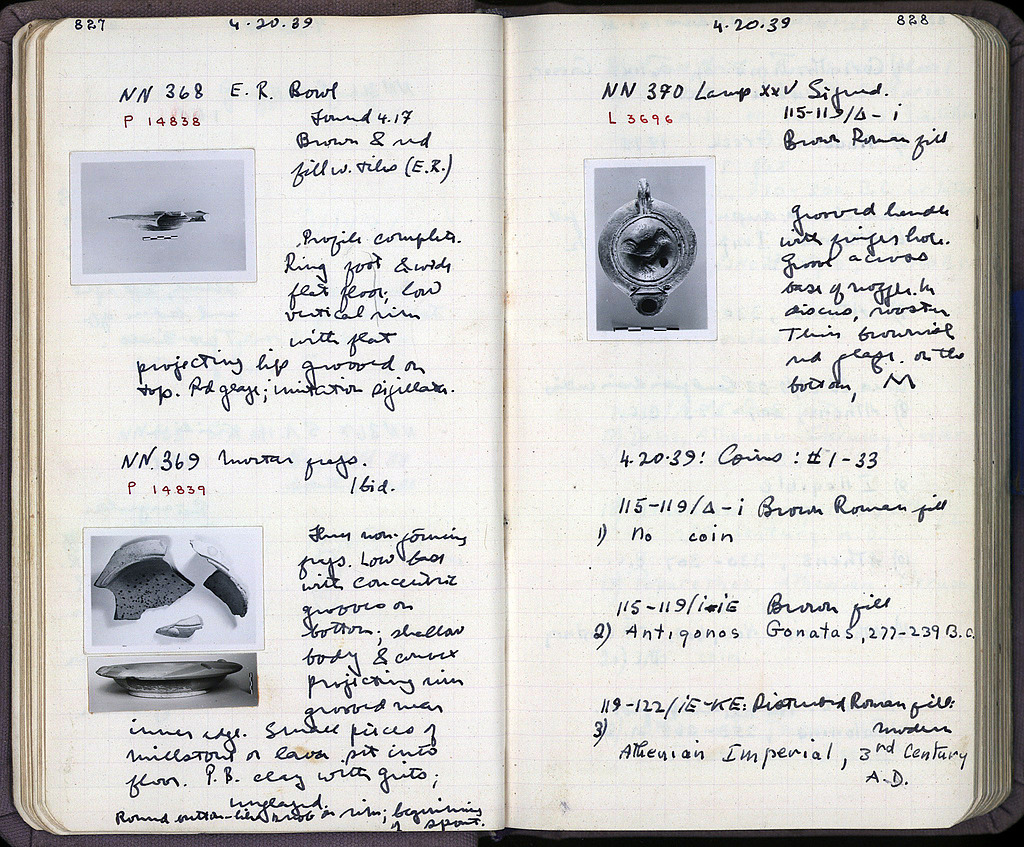 827
4-20-39
NN 368 E. R. Bowl
P 14838
Found 4.17
Brown & red
fill w. tiles (E.R.)
Profile complete.
Ring foot & wide
flat floor, low
vertical rim
with flat
projecting lip grooved on
top. Rd glaze; imitation sigillata.
NN 369 Mortar frgs.
P 14839
Ibid.
Three non-joining
frgs. Low base
with concentric
grooves on
bottom; shallow
body & convex
projecting rim
grooved near
inner edge. Small pieces of
millstone or lava set into
floor. P.B. clay with grits;
unglazed.
Round button-like knob on rim; beginning
of spout.
4-20-39
828
NN 370 Lamp XXV Signed.
L 3696
115-119/Δ-i
Brown Roman fill
Grooved handle
with finger hole.
Groove across
base of nozzle. In
discus, rooster
Thin brownish
red glaze. On the
bottom, M
4.20.39: Coins: #1-33
115-119/Δ-i Brown Roman fill
1) No coin
115-119/i-iE Brown fill
2) Antigonos Gonatas, 277-239 B.C.
119-122/iE-KE: Disturbed Roman fill:
3) modern
Athenian Imperial, 3rd Century
A.D.